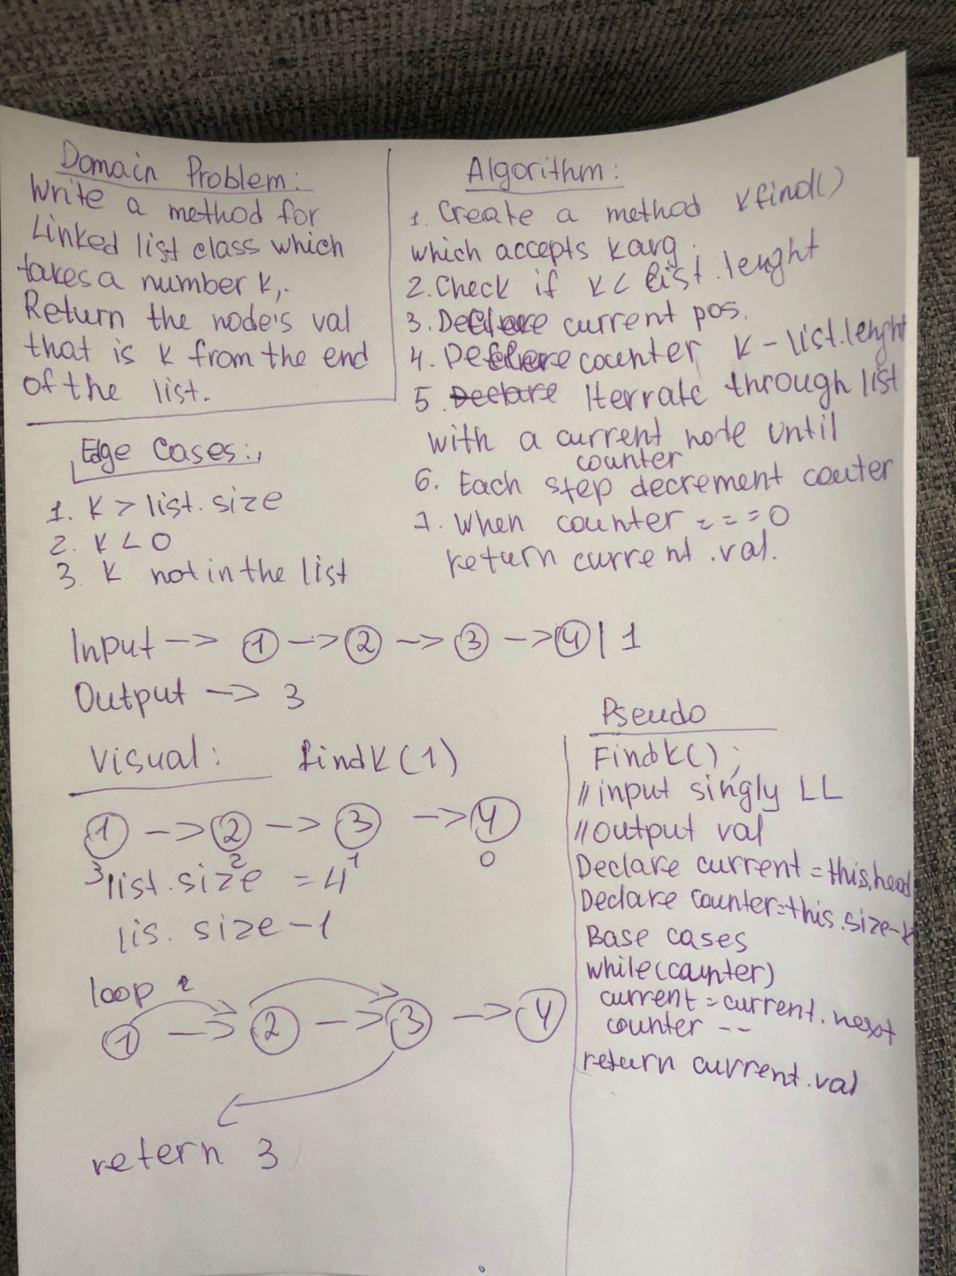 Domain Problem:
Write a method for
Linked list class which
takes a number k,.
Return the node's val
that is k from the end
of the list.
Algorithm:
1. Create a method kfind()
which accepts k arg.
2. Check if k < list.lenght
3. Declare current pos.
4. Declare counter k - list.lenght
5. Declare Iterrate through list
with a current node until
counter
6. Each step decrement couter
7. When counter === 0
return current.val.
Edge Cases:
1. k > list.size
2. k < 0
3. k not in the list
Input --> 1 --> 2 --> 3 --> 4 | 1
Output --> 3
Visual: findk(1)
1 --> 2 --> 3 --> 4
3 2 1 0
list.size = 4
lis. size-1
loop
1 --> 2 --> 3 --> 4
retern 3
Pseudo
Findk();
//input singly LL
//output val
Declare current = this.head
Declare counter=this.size-k
Base cases
while(counter)
current = current.next
counter --
return current.val